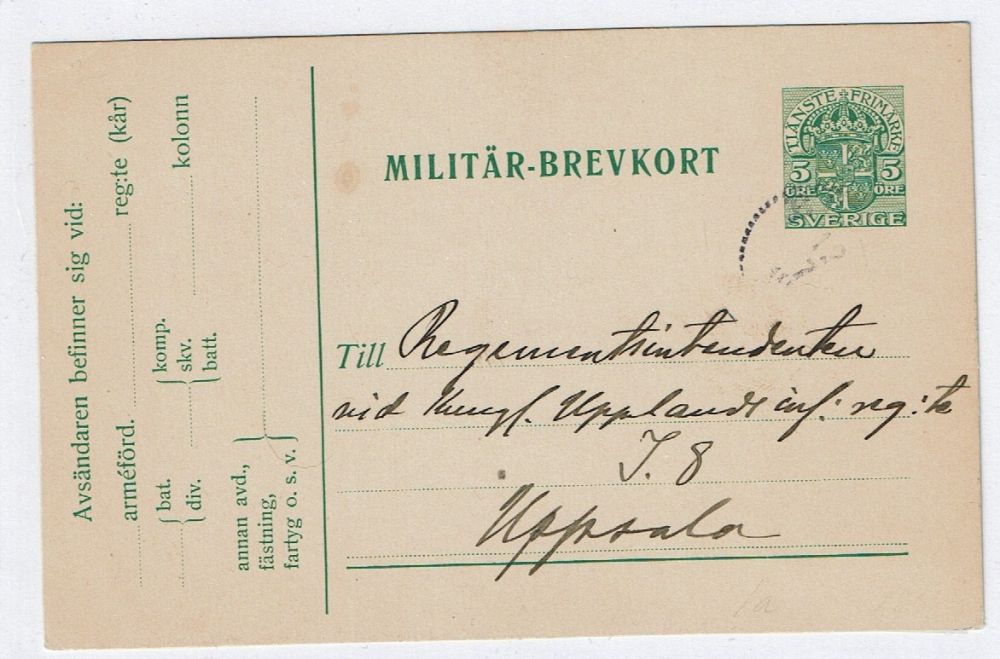 Avsändaren befinner sig vid:
arméförd. reg:te (kår)
bat. komp.
div. skv. kolonn
batt.
annan avd.,
fästning,
fartyg o. s. v.
MILITÄR-BREVKORT
TJÄNSTE FRIMÄRKE
5 5
ÖRE ÖRE
SVERIGE
Till Regementsintendenten
vid Kungl. Upplands inf: reg:te
I. 8
Uppsala